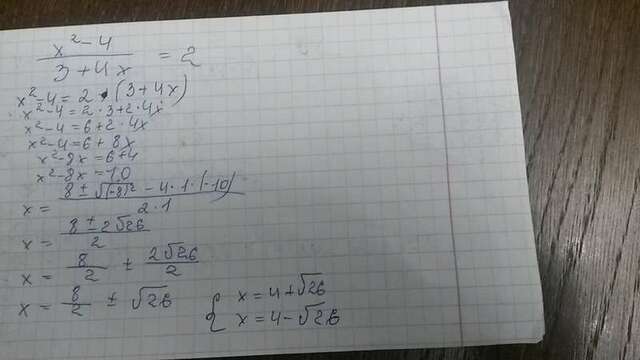 x²-4 / 3+4x = 2
x²-4=2·(3+4x)
x²-4=2·3+2·4x
x²-4=6+2·4x
x²-4=6+8x
x²-8x=6+4
x²-8x=10
x = 8±√(-8)²-4·1·(-10) / 2·1
x = 8±2√26 / 2
x = 8/2 ± 2√26/2
x = 8/2 ± √26
{ x=4+√26
x=4-√26